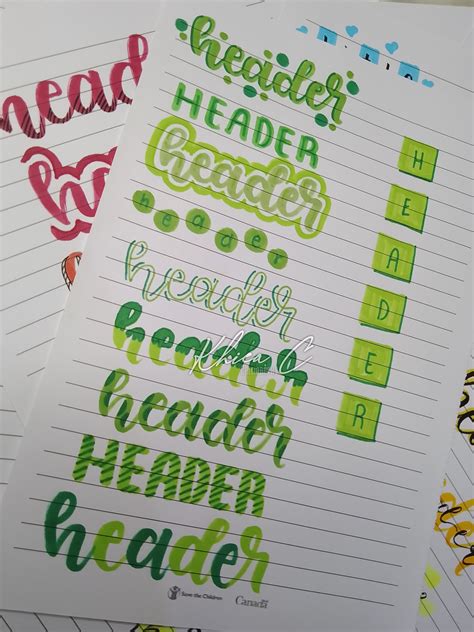 header
HEADER
header
header
header
header
header
HEADER
header
H
E
A
D
E
R
head
he
Khica C
Save the Children
Canada